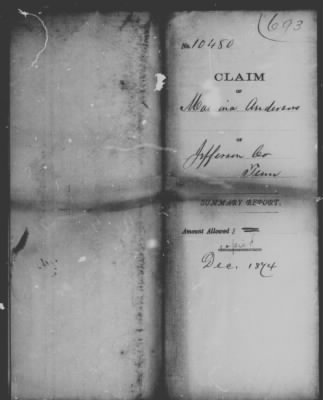 693
No. 10480
CLAIM
OF
Anderson
OF
Jefferson Co
Tenn
SUMMARY REPORT.
Amount Allowed :
Dec. 1874